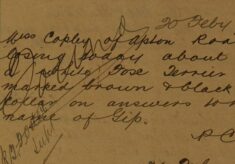 20 Feby
Miss Copley of Apton Road
losing today about
a white Fox Terrier
marked brown & black
Collar on answers to
name of Gip.
P.C.